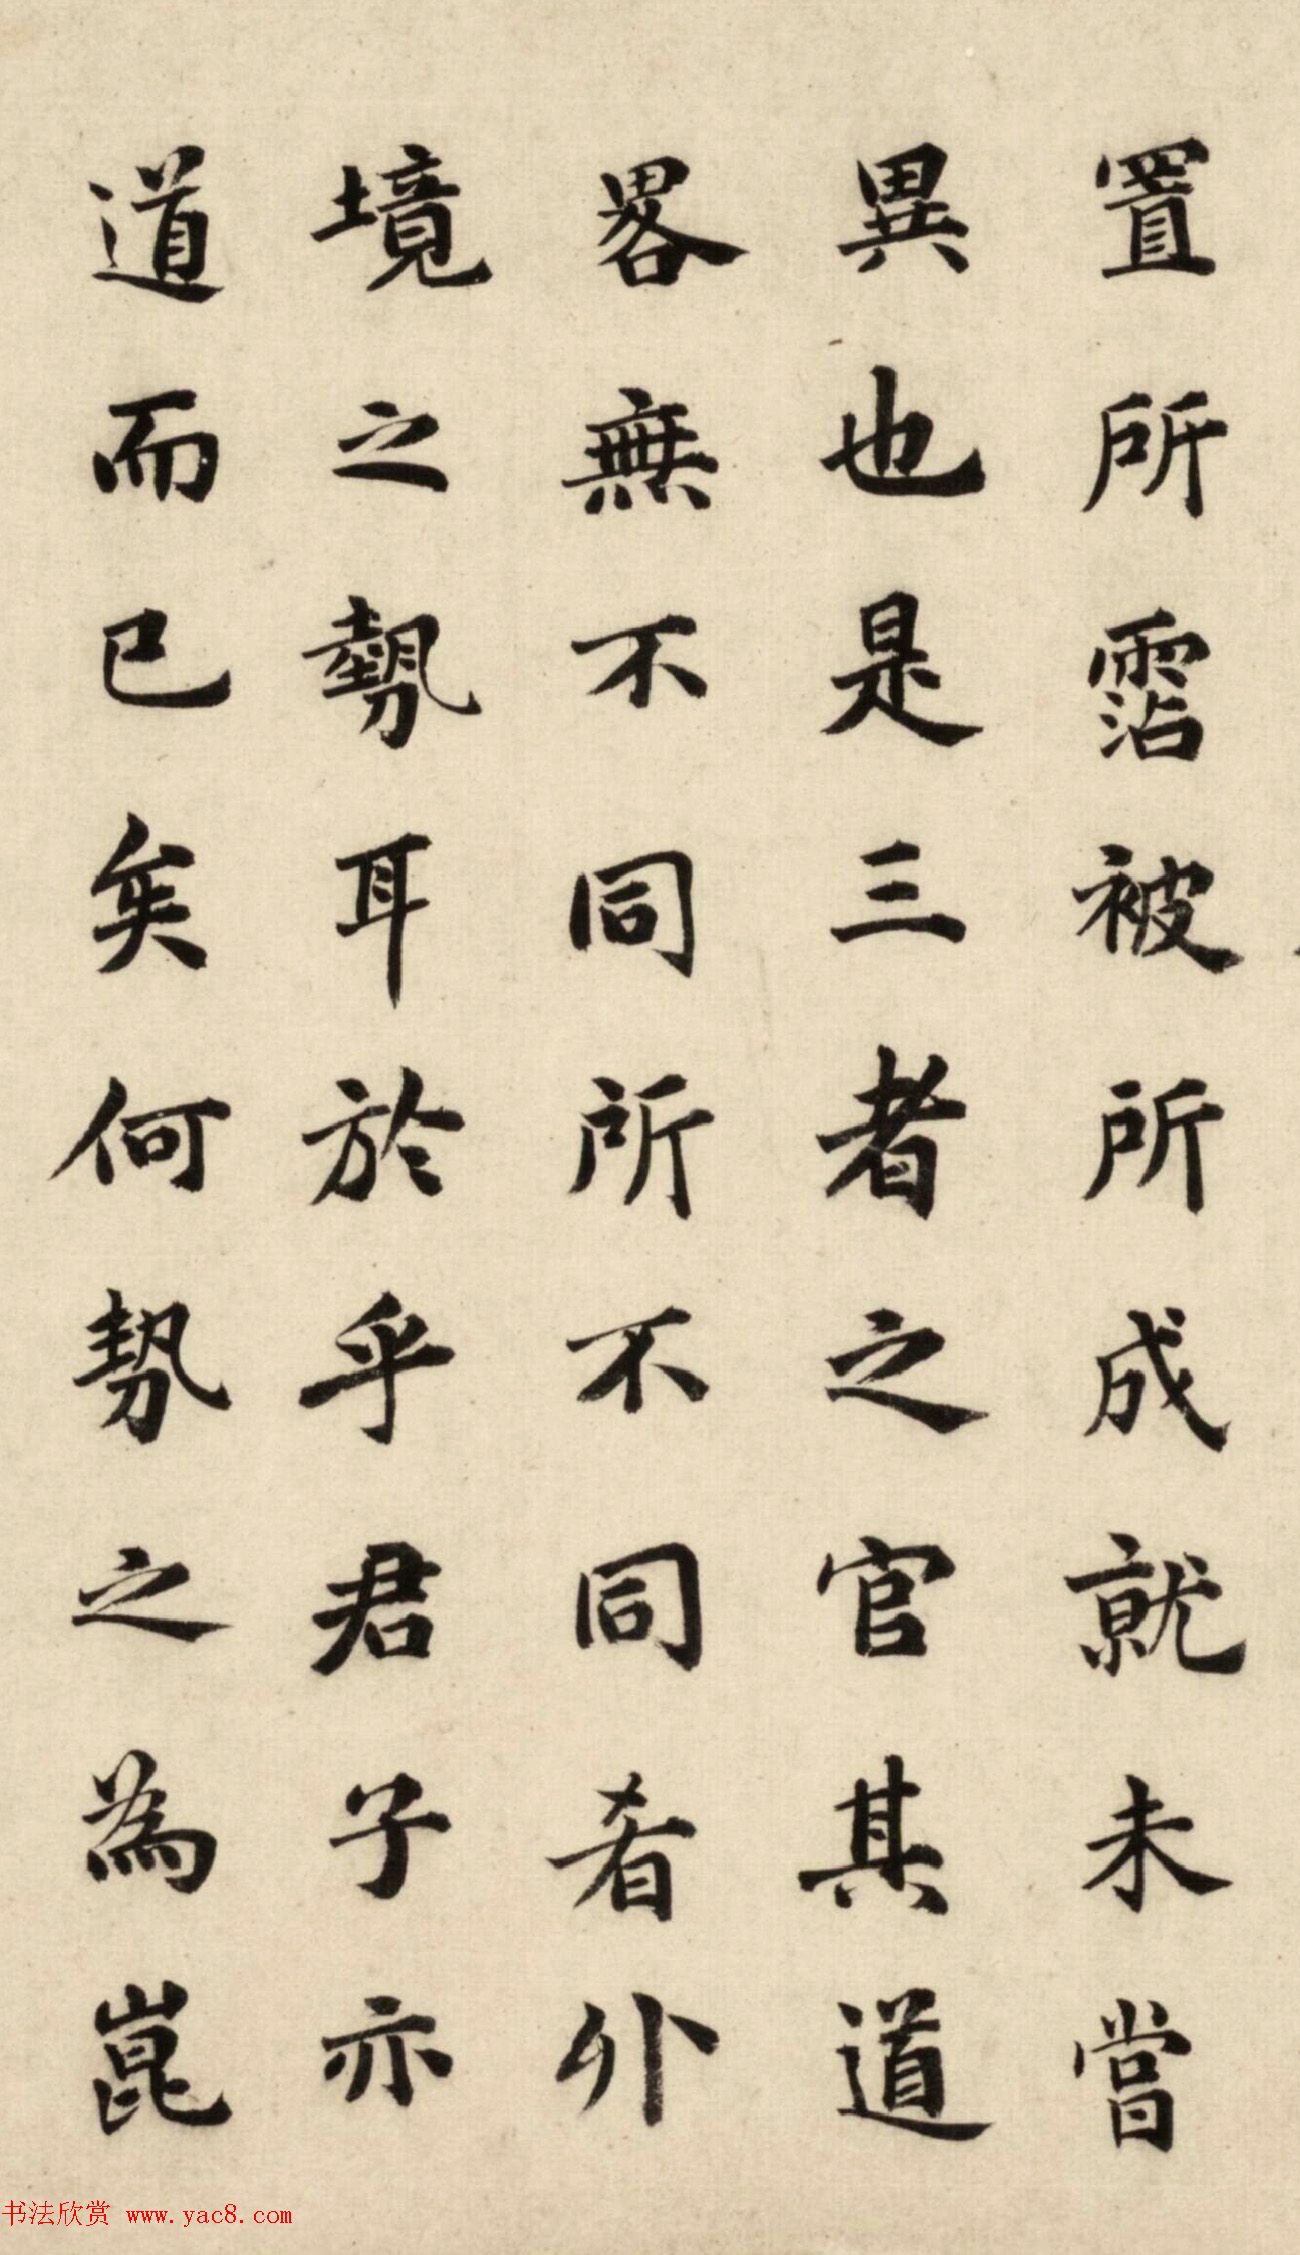 置所霑被所成就未嘗
異也是三者之官其道
畧無不同所不同者外
境之勢耳於乎君子亦
道而已矣何勢之為崑
书法欣赏 www.yac8.com